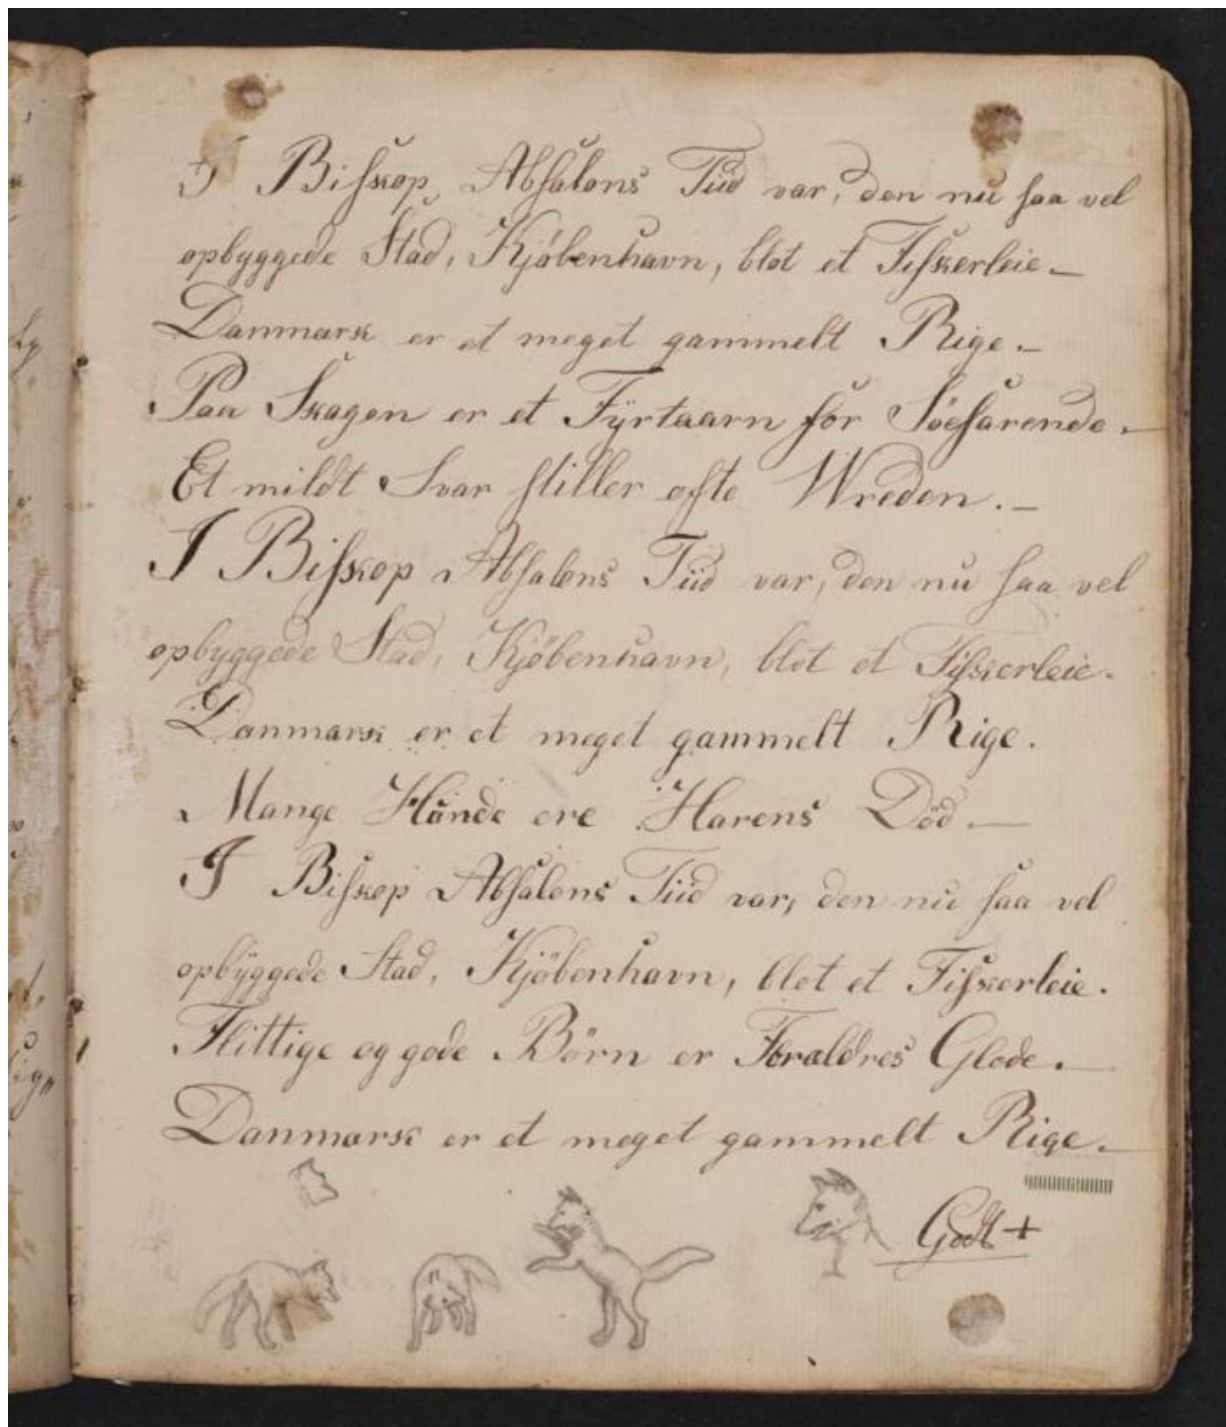 I Biskop Absalons Tiid var, den nu saa vel
opbyggede Stad, Kjöbenhavn, blot et Fiskerleie. –
Danmark er et meget gammelt Rige. –
Paa Skagen er et Fÿrtaarn for Söefarende. –
Et mildt Svar stiller ofte Wreden. –
I Biskop Absalons Tiid var, den nu saa vel
opbyggede Stad, Kjöbenhavn, blot et Fiskerleie.
Danmark er et meget gammelt Rige.
Mange Hunde ere Harens Död. –
I Biskop Absalons Tiid var, den nu saa vel
opbÿggede Stad, Kjöbenhavn, blot et Fiskerleie.
Flittige og gode Börn er Forældres Glæde. –
Danmark er et meget gammelt Rige. –
Godt +